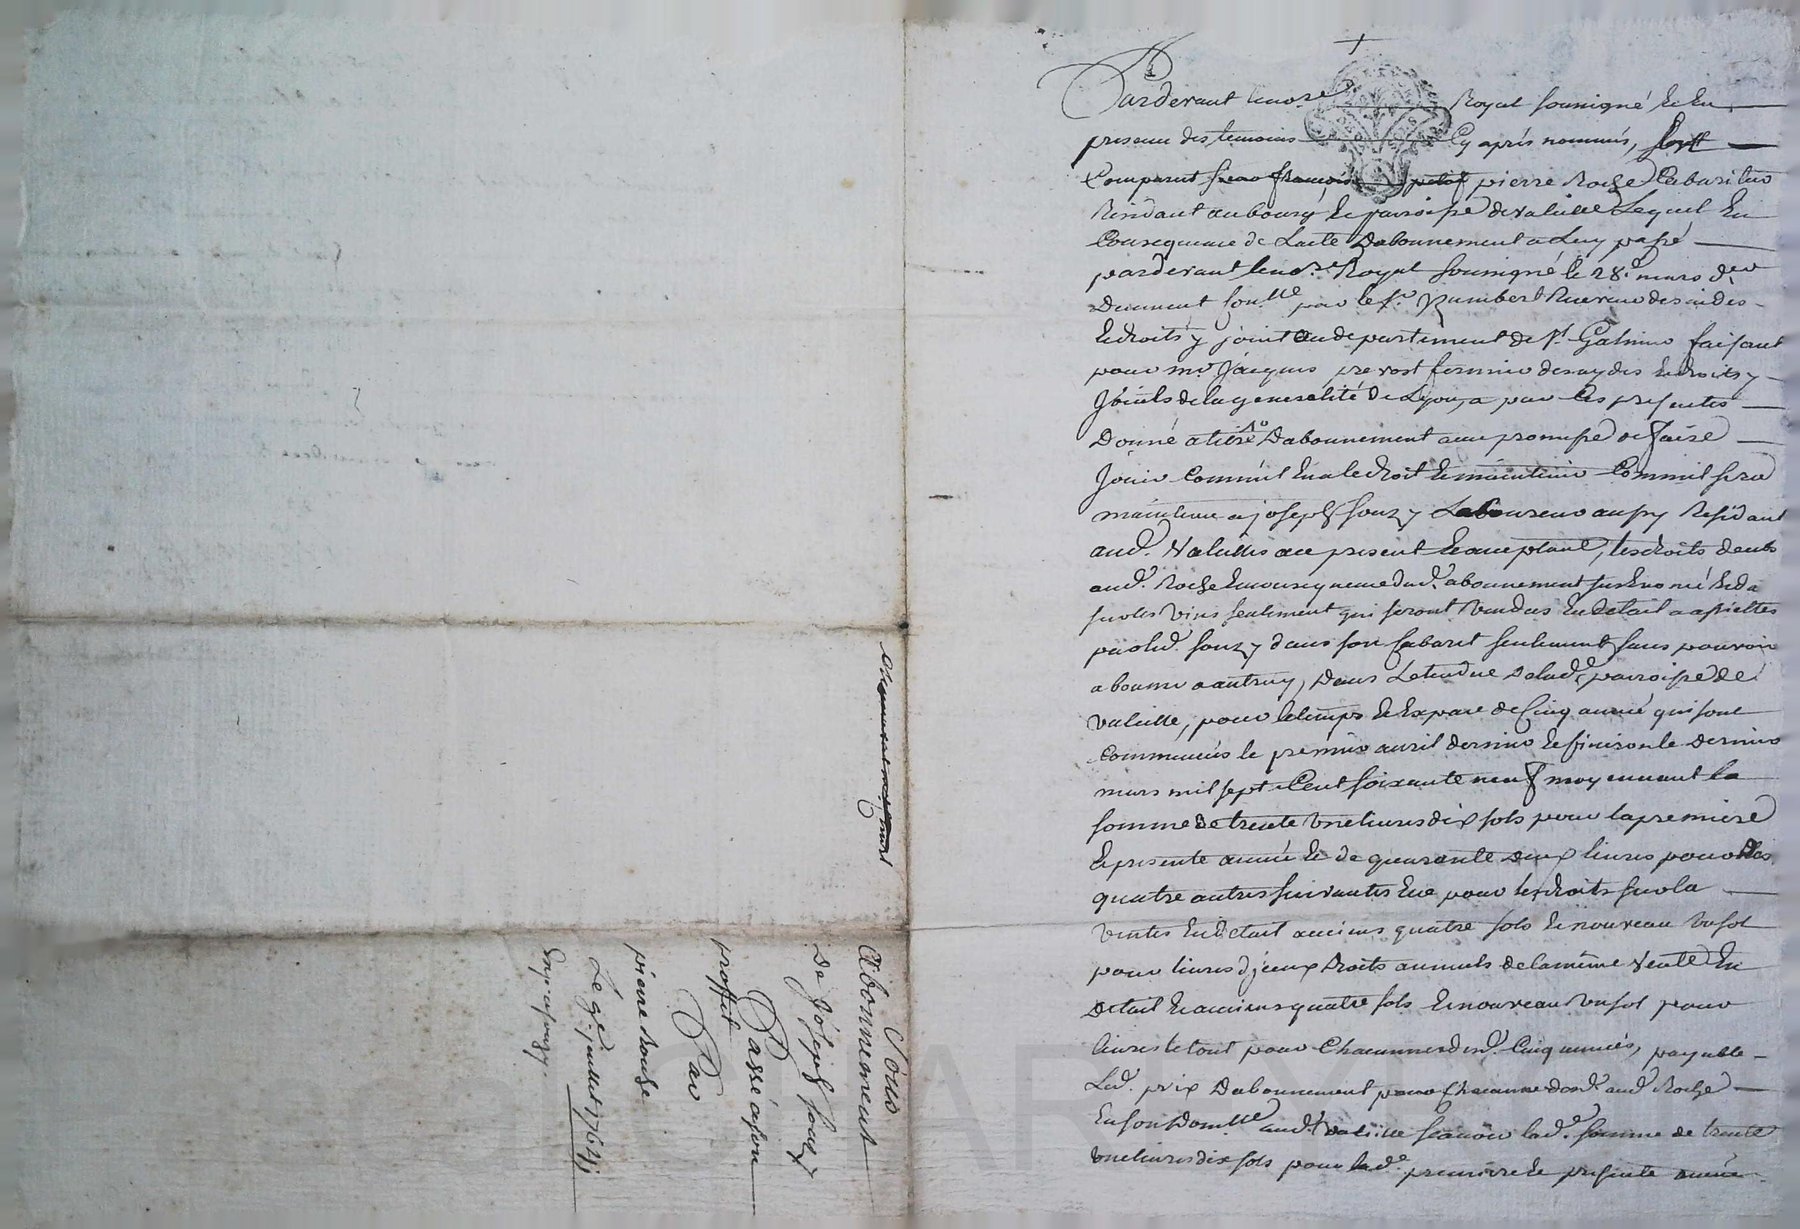 Pardevant le no.re Royal soussigné Et En
presence des temoins Cy après nommés, fust
Comparut sieur françois pierre Roche Cabaretier
Residant au bourg Et parroisse de valeille Lequel En
Consequence de Lacte Dabonnement a Luy passé
pardevant le no.re Royal soussigné le 28.e mars d.er
Deument Con.llé par le s.r humbert Receveur des aides
Et droits y joint au departement de S.t Galmier faisant
pour m.r Jacques prevost fermier des aydes Et droits y
Joints de la generalité de Lyon, a par Ces presentes
Donné a titre Dabonnement avec promesse de faire
Jouir Comme il En a le droit Et maintenir Comme il sera
maintenu a joseph souzy Laboureur aussy Residant
aud.t Valeilles ace present Et acceptant, les droits deubs
aud.t Roche En consequence dud.t abonnement
sur les vins seulement qui seront Vendus En Detail a assiettes
par led.t souzy dans son Cabaret seulement sans pouvoir
abonner a autruy, Dans Letendue De lad.e parroisse de
valeille, pour le temps Et Espace de Cinq année qui sont
Commencés le premier avril dernier Et finiront le dernier
mars mil sept Cent soixante neuf moyennant la
somme de trente Une livres dix sols pour la premiere
Et presente année Et de quarante deux livres pour les
quatre autres suivantes Et ce pour les droits sur la
Ventes En Detail anciens quatre sols Et nouveau Un sol
pour livres d'jceux Droits annuels de la même Vente En
Detail Et anciens quatre sols Et nouveau Un sol pour
livres le tout pour Chacunnes desd.t Cinq années, payable
Led.t prix Dabonnement pour Chacunne dord.t aud.t Roche
En son Domi.lle aud.t Valeille scavoir lad.e somme de trente
Une livres dix sols pour lad.e premiere Et presente année
Sous
Abonnement
De Joseph souzy
Passé a son
proffit
Par
pierre Roche
Le 9.e juillet 1764